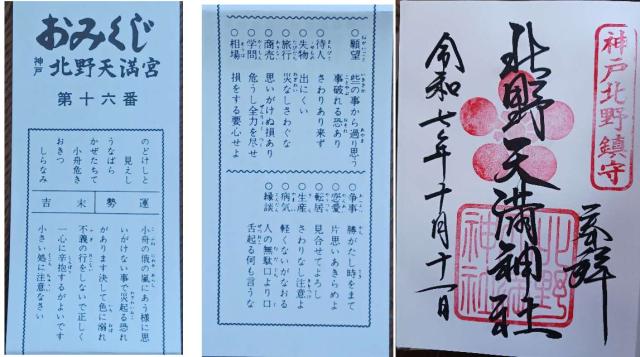 おみくじ
神戸 北野天満宮
第十六番
のどけしと
見えし
うなばら
かぜたちて
小舟危き
おきつ
しらなみ
運勢 末吉
小舟の俄の嵐にあう様に思
いがけない事で災起る恐れ
があります決して色に溺れ
不義の行をしないで正しく
一心に辛抱するがよいです
小さい処に注意なさい
○願望 些の事から過り思う
事破れる恐あり
○待人 さわりあり来ず
○失物 出にくい
○旅行 災なしさわぐな
○商売 思いがけぬ損あり
○学問 危うし全力を尽せ
○相場 損をする要心せよ
○争事 勝がたし時をまて
○恋愛 片思いあきらめよ
○転居 見合せてよろし
○生産 さわりなし注意よ
○病気 軽くないがなおる
○縁談 人の無駄口より口
舌起る何も言うな
神戸北野鎮守
奉拝
北野天満神社
北野天満神社
令和七年十月十一日